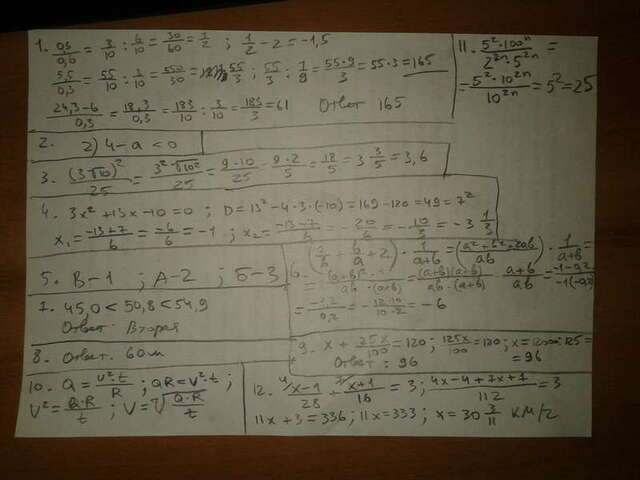 1. 0,3/0,6 = 3/10 : 6/10 = 30/60 = 1/2 ; 1/2 - 2 = -1,5
5,5/0,3 = 55/10 : 3/10 = 550/30 = 55/3 ; 55/3 : 1/9 = 55·9/3 = 55·3 = 165
24,3-6/0,3 = 18,3/0,3 = 183/10 : 3/10 = 183/3 = 61 Ответ 165
11. 5²·100ⁿ/2²ⁿ·5²ⁿ =
= 5²·10²ⁿ/10²ⁿ = 5² = 25
2. 2) 4-a<0
3. (3√10)²/25 = 3²·√10²/25 = 9·10/25 = 9·2/5 = 18/5 = 3 3/5 = 3,6
4. 3x²+13x-10=0 ; D=13²-4·3·(-10)=169-120=49=7²
x₁ = -13+7/6 = -6/6 = -1 ; x₂ = -13-7/6 = -20/6 = -10/3 = -3 1/3
5. В-1 ; А-2 ; Б-3
6. (a/b + b/a + 2) · 1/a+b = (a²+b²+2ab/ab) · 1/a+b =
= (a+b)(a+b)/ab·(a+b) = a+b/ab
= -1,2/0,2 = -12·10/10·2 = -6
7. 45,0 < 50,8 < 54,9
Ответ: Вторая
8. Ответ. 60м
9. x + 25x/100 = 120; 125x/100 = 120; x = 12000:125 =
= 96
Ответ: 96
10. Q = V²·t/R ; QR = V²·t ;
V² = Q·R/t ; V = √Q·R/t
12. x-1/28 + x+1/16 = 3 ; 4x-4+7x+7/112 = 3
11x+3=336; 11x=333; x=30 3/11 км/г